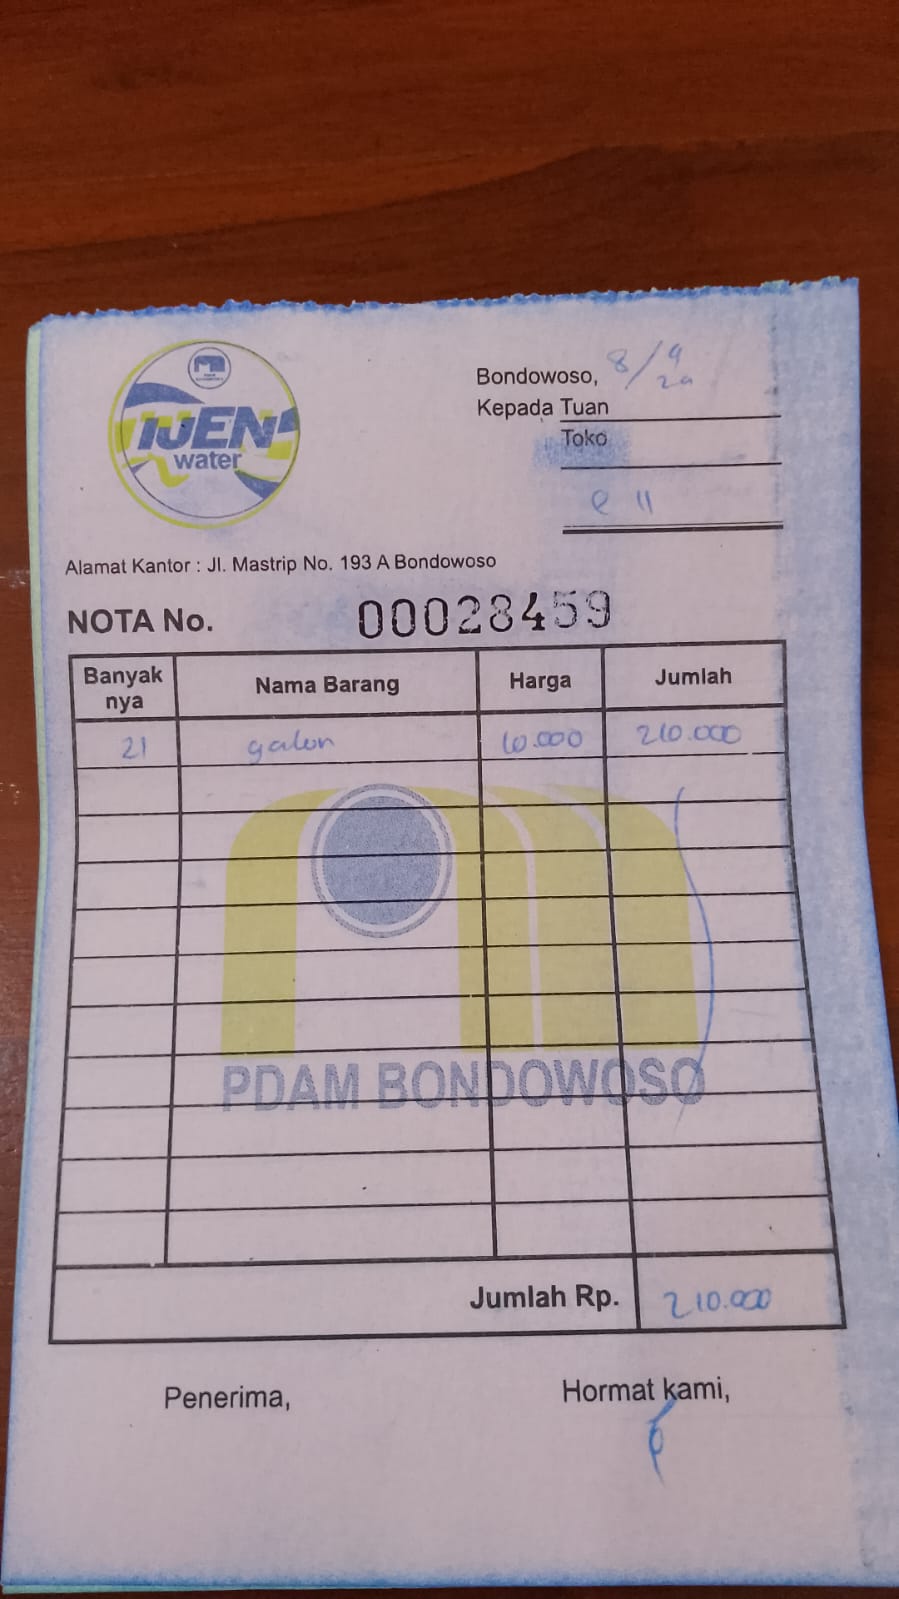 IJEN
water
Bondowoso, 8/9
Kepada Tuan
Toko
e ll
Alamat Kantor : Jl. Mastrip No. 193 A Bondowoso
NOTA No. 00028459
Banyak nya Nama Barang Harga Jumlah
21 galon 10.000 210.000
PDAM BONDOWOSO
Jumlah Rp. 210.000
Penerima, Hormat kami,